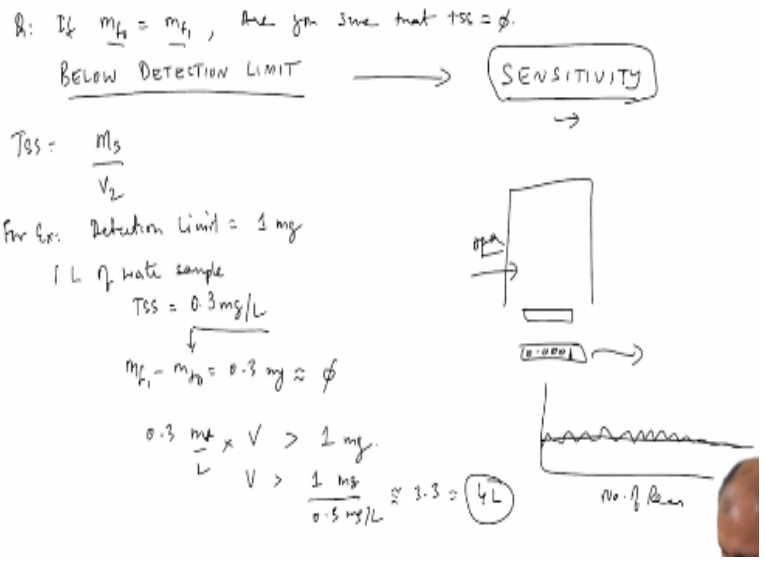 Q: If m_f0 = m_f1, Are you sure that TSS = ø.
BELOW DETECTION LIMIT → SENSITIVITY
→
TSS = m_s / V_2
For Ex: Detection Limit = 1 mg
1 L of wate sample
TSS = 0.3 mg/L
m_f1 - m_f0 = 0.3 mg ≈ ø
0.3 mg/L × V > 1 mg.
V > 1 mg / 0.3 mg/L ≈ 3.3 = 4L
open
0.0001
No. of